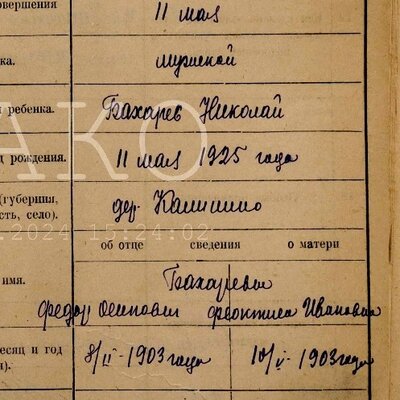 овершения
11 мая
ка.
мужской
ребенка.
Бахарев Николай
д рождения.
11 мая 1925 года
(губерния,
сть, село).
дер. Калинино
об отце сведения о матери
имя.
Бахаревы
Федор Осипович Феоктиса Ивановна
есяц и год
8/II-1903 года 10/V-1903 года
АКО
.2024 15:24:02